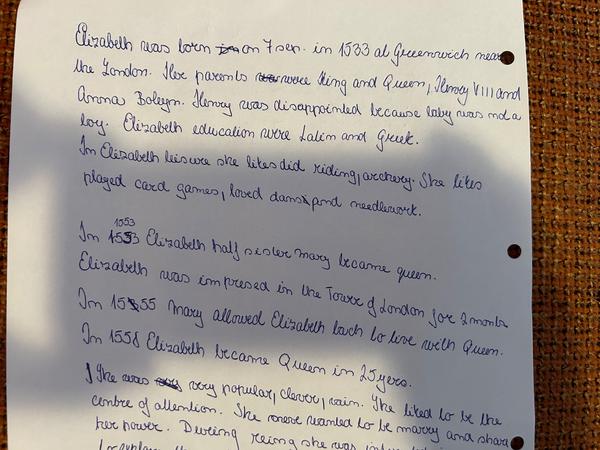 Elizabeth was born in on 7 sep. in 1533 at Greenwich near
the London. Her parents was were King and Queen, Henry VIII and
Anna Boleyn. Henry was disappointed because baby was not a
boy. Elizabeth education were Latin and Greek.
In Elizabeth leisure she likes did riding, archery. She likes
played card games, loved dans and needlework.
1553
In 1553 Elizabeth half sister Mary became queen.
Elizabeth was impresed in the Tower of London for 2 months
In 1555 Mary allowed Elizabeth back to live with Queen.
In 1558 Elizabeth became Queen in 25 yers.
She was very popular, clever, vain. She liked to be the
centre of attention. She never wanted to be marry and share
her power. During reing she was